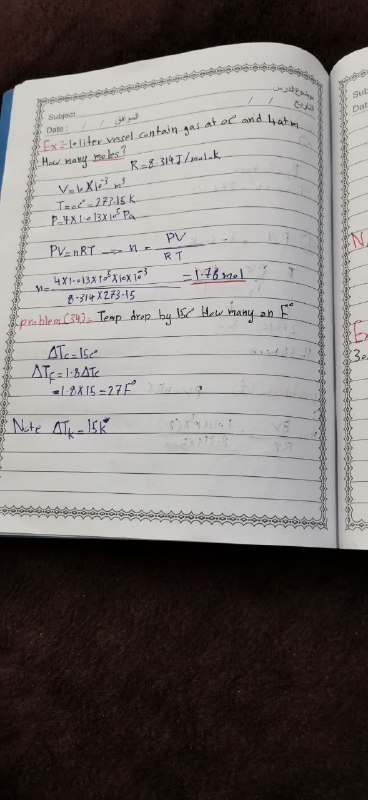 موضوع الدرس
Subject
التاريخ / / الموافق
Date : / /
Ex:- 10 liter vessel contain gas at 0c° and 4atm
How many moles?
R=8.314J/mol.k
V=10X10⁻³ m³
T=0c°=273.15K
P=4X1.013X10⁵Pa
PV=nRT → n = PV / RT
n= 4X1.013X10⁵X10X10⁻³ / 8.314X273.15 = 1.78 mol
problem(34)= Temp drop by 15c° How many on F°
ΔTc=15c°
ΔTF=1.8ΔTc
=1.8X15=27F°
Note ΔTk=15k°
Sub
Dat
N
Ex
3